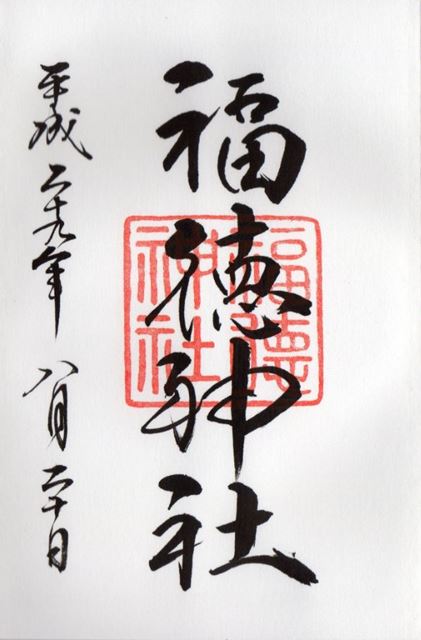 福徳神社
福徳神社
平成二十九年八月二十日